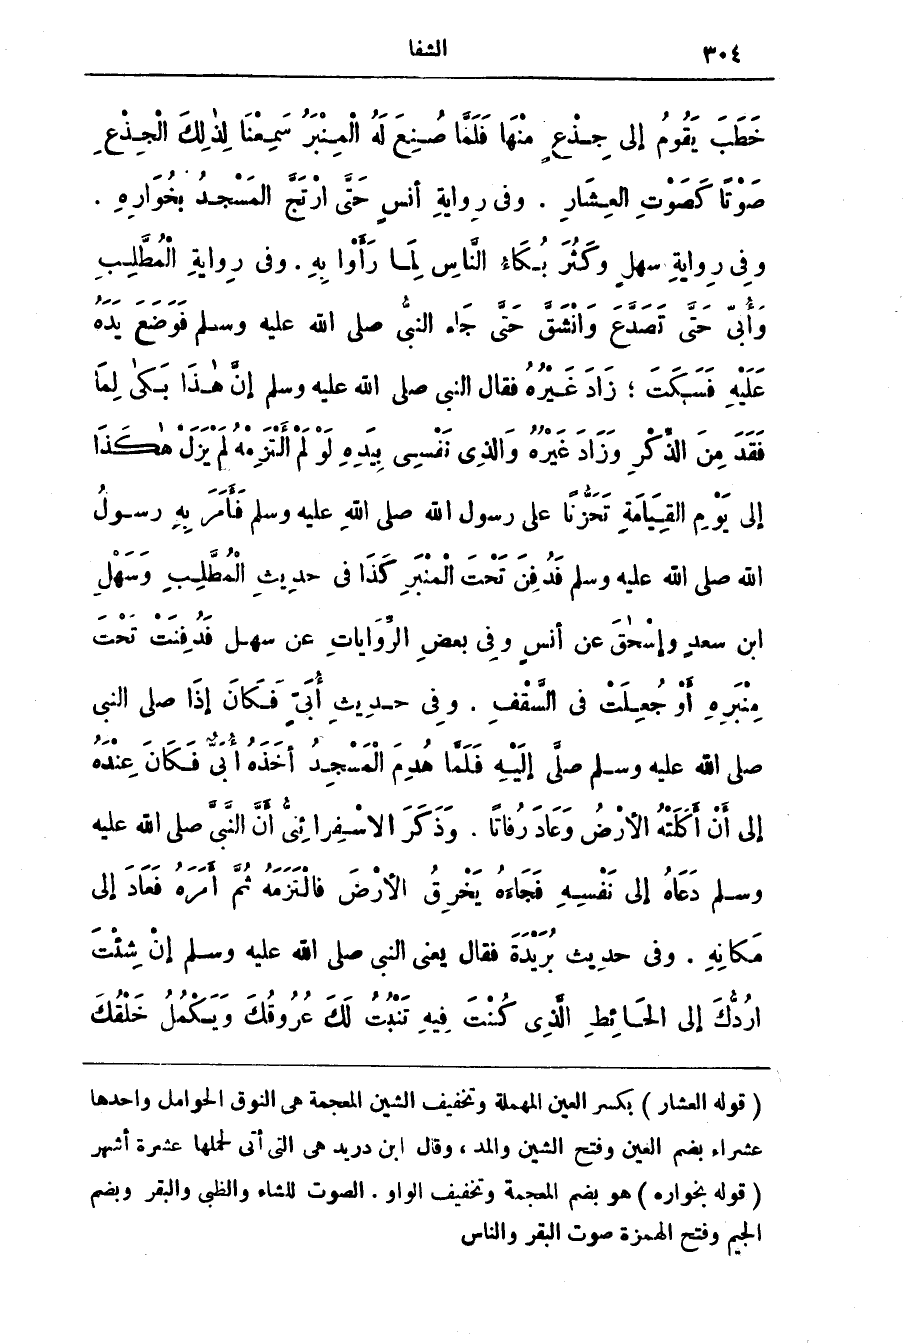 ٣٠٤
الشفا
خَطَبَ يَقُومُ إلى جِذْعٍ مِنْهَا فَلَمَّا صُنِعَ لَهُ الْمِنْبَرُ سَمِعْنَا لِذٰلِكَ الْجِذْعِ
صَوْتًا كَصَوْتِ العِشَارِ . وفى رِوايةِ أنسٍ حَتَّى ارْتَجَّ المَسْجِدُ بِخُوَارِهِ .
وفى رِوايةِ سهلٍ وكَثُرَ بُكَاءُ النَّاسِ لِمَا رَأَوْا بِهِ . وفى رِوايةِ الْمُطَّلِبِ
وَأُبىّ حَتَّى تَصَدَّعَ وَانْشَقَّ حَتَّى جَاء النبىُّ صلى الله عليه وسلم فَوَضَعَ يَدَهُ
عَلَيْهِ فَسَكَتَ ؛ زَادَ غَيْرُهُ فقال النبى صلى الله عليه وسلم إنَّ هٰذَا بَكىٰ لِمَا
فَقَدَ مِنَ الذِّكْرِ وَزَادَ غَيْرُهُ وَالذِى نَفْسِى بِيَدِهِ لَوْ لَمْ أَلْتَزِمْهُ لَمْ يَزَلْ هٰكَذَا
إلى يَوْمِ القِيَامَةِ تَحَزُّنًا على رسول الله صلى اللهِ عليه وسلم فَأَمَرَ بِهِ رسولُ
الله صلى الله عليه وسلم فَدُفِنَ تَحْتَ الْمِنْبَرِ كَذَا فى حديثِ الْمُطَّلِبِ وَسَهْلِ
ابن سعدٍ وإسْحٰقَ عن أنسٍ وفى بعضِ الرِّوَاياتِ عن سهل فَدُفِنَتْ تَحْتَ
مِنْبَرِهِ أَوْ جُعِلَتْ فى السَّقْفِ . وفى حديثِ أُبَىّ فَكَانَ إذَا صلى النبى
صلى الله عليه وسلم صلَّى إلَيْهِ فَلَمَّا هُدِمَ الْمَسْجِدُ أخَذَهُ أُبَىٌّ فَكَانَ عِنْدَهُ
إلى أنْ أَكَلَتْهُ الأرْضُ وَعَادَ رُفاتًا . وَذَكَرَ الاسْفِرائِنىُّ أنَّ النَّبىَّ صلى الله عليه
وسلم دَعَاهُ إلى نَفْسِهِ فَجَاءَهُ يَخْرِقُ الأرْضَ فالْتَزَمَهُ ثُمَّ أمَرَهُ فَعَادَ إلى
مَكانِهِ . وفى حديث بُرَيْدَةَ فقال يعنى النبى صلى الله عليه وسلم إنْ شِئْتَ
ارُدُّكَ إلى الحَائِطِ الَّذِى كُنْتَ فِيهِ تَنْبُتُ لَكَ عُرُوقُكَ وَيَكْمُلُ خَلْقُكَ
( قوله العشار ) بكسر العين المهملة وتخفيف الشين المعجمة هى النوق الحوامل واحدها
عشراء بضم العين وفتح الشين والمد ، وقال ابن دريد هى التى أتى لحملها عشرة أشهر
( قوله بخواره ) هو بضم المعجمة وتخفيف الواو . الصوت للشاء والظبى والبقر وبضم
الجيم وفتح الهمزة صوت البقر والناس